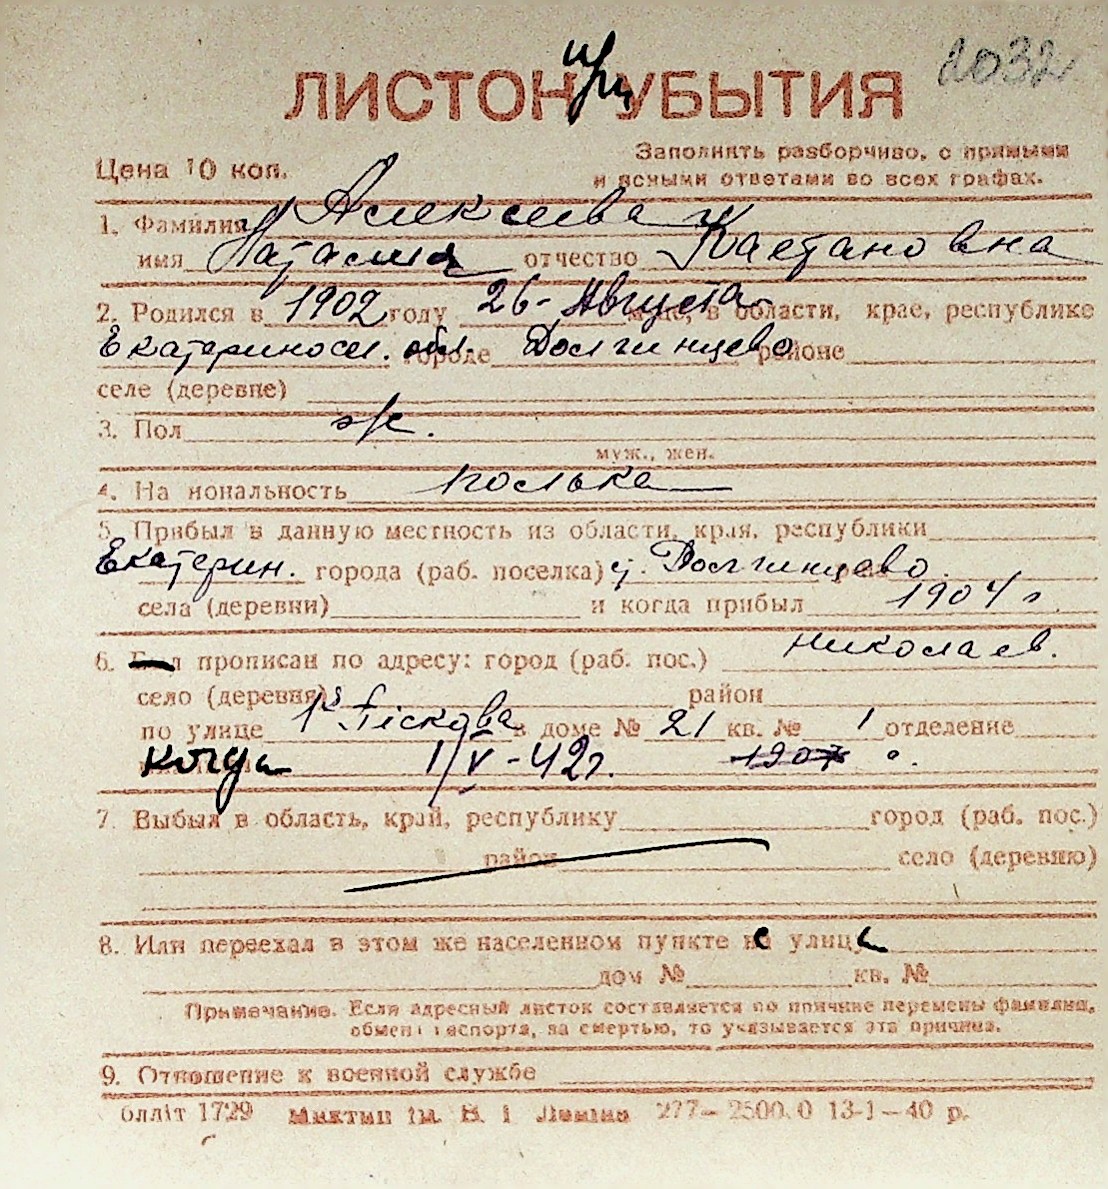 2032
ЛИСТОК при УБЫТИЯ
Цена 10 коп.
Заполнять разборчиво, с прямыми
и ясными ответами во всех графах.
1. Фамилия Алексеева
имя Наталия отчество Каетановна
2. Родился в 1902 году 26 - Августа м-це, в области, крае, республике
Екатериносл. обл. городе Долгинцево районе
селе (деревне)
3. Пол ж.
муж., жен.
4. Национальность полька
5. Прибыл в данную местность из области, края, республики
Екатерин. города (раб. поселка) ст. Долгинцево
села (деревни) и когда прибыл 1904 г.
6. Был прописан по адресу: город (раб. пос.) Николаев.
село (деревня) район
по улице 1 Піскова в доме № 21 кв. № 1 отделение
когда 1/V - 42 г. 1907
7. Выбыл в область, край, республику город (раб. пос.)
район село (деревню)
8. Или переехал в этом же населенном пункте с улицы
дом № кв. №
Примечание. Если адресный листок составляется по причине перемены фамилии,
обмена паспорта, за смертью, то указывается эта причина.
9. Отношение к военной службе
блліт 1729 Миктип ім. В. І Леніна 277-2500.0 13-1-40 р.